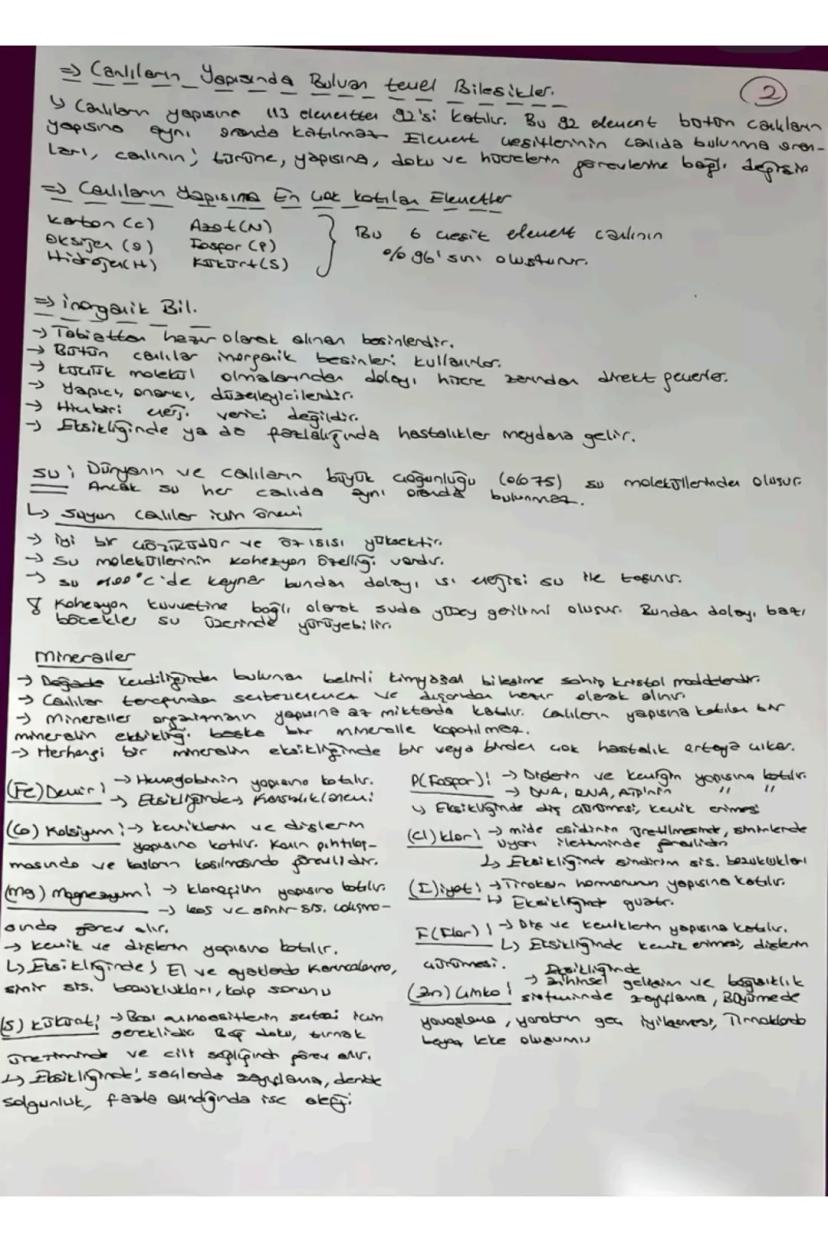 ⇒ Canlıların Yapısında Bulunan temel Bileşikler.
2
↳ Canlıların yapısına 113 elementten 92'si katılır. Bu 92 element bütün canlıların
yapısına aynı oranda katılmaz. Element çeşitlerinin canlıda bulunma oran-
ları, canlının; türüne, yapısına, doku ve hücrelerin görevlerine bağlı değişir
⇒ Canlıların Yapısına En çok katılan Elementler
Karbon (C) Azot (N)
Oksijen (O) Fosfor (P)
Hidrojen (H) Kükürt (S)
Bu 6 çeşit element canlının
%96'sını oluşturur.
⇒ inorganik Bil.
→ Tabiattan hazır olarak alınan besinlerdir.
→ Bütün canlılar inorganik besinleri kullanırlar.
→ küçük molekül olmalarından dolayı hücre zarından direkt geçerler.
→ Yapıcı, onarıcı, düzenleyicilerdir.
→ Hiçbiri enerji verici değildir.
→ Eksikliğinde ya da fazlalığında hastalıklar meydana gelir.
su : Dünyanın ve canlıların büyük çoğunluğu (%75) su moleküllerinden oluşur
Ancak su her canlıda aynı oranda bulunmaz.
↳ suyun canlılar için önemi
→ iyi bir çözücüdür ve öz ısısı yüksektir.
→ su moleküllerinin kohezyon özelliği vardır.
→ su 100°C'de kaynar bundan dolayı ısı enerjisi su ile taşınır.
Kohezyon kuvvetine bağlı olarak suda yüzey gerilimi oluşur. Bundan dolayı bazı
böcekler su üzerinde yürüyebilir.
Mineraller
→ Doğada kendiliğinden bulunan belirli kimyasal bileşime sahip kristal maddelerdir.
→ Canlılar tarafından sentezlenemez ve dışarıdan hazır olarak alınır.
→ Mineraller organizmanın yapısına az miktarda katılır. Canlıların yapısına katılan bir
mineralin eksikliği başka bir mineralle kapatılmaz.
→ Herhangi bir mineralin eksikliğinde bir veya birden çok hastalık ortaya çıkar.
(Fe) Demir : → Hemoglobinin yapısına katılır.
→ Eksikliğinde → Kansızlık (anemi)
(Ca) Kalsiyum : → kemiklerin ve dişlerin
yapısına katılır. Kanın pıhtılaş-
masında ve kasların kasılmasında görevlidir.
(Mg) Magnezyum : → klorofilin yapısına katılır.
→ kas ve sinir sis. çalışma-
sında görev alır.
→ kemik ve dişlerin yapısına katılır.
↳ Eksikliğinde ; El ve ayaklarda karıncalanma,
sinir sis. bozuklukları, kalp sorunu
(S) kükürt : → Bazı aminoasitlerin sentezi için
gereklidir. Bağ doku, tırnak
üretiminde ve cilt sağlığında görev alır.
↳ Eksikliğinde ; saçlarda zayıflama, deride
solgunluk, fazla alındığında ise alerji
P (Fosfor) : → Dişlerin ve kemiğin yapısına katılır.
→ DNA, RNA, ATP'nin " "
↳ Eksikliğinde diş çürümesi, kemik erimesi
(Cl) klor : → mide asidinin üretilmesinde, sinirlerde
uyarı iletiminde görevlidir
↳ Eksikliğinde sindirim sis. bozuklukları
(I) iyot : → Tiroksin hormonunun yapısına katılır.
↳ Eksikliğinde guatr.
F (Flor) : → Diş ve kemiklerin yapısına katılır.
↳ Eksikliğinde kemik erimesi, dişlerin
çürümesi.
(Zn) Çinko : → Eksikliğinde zihinsel gelişim ve bağışıklık
sisteminde zayıflama, Büyümede
yavaşlama, yaraların geç iyileşmesi, Tırnaklarda
beyaz leke oluşumu